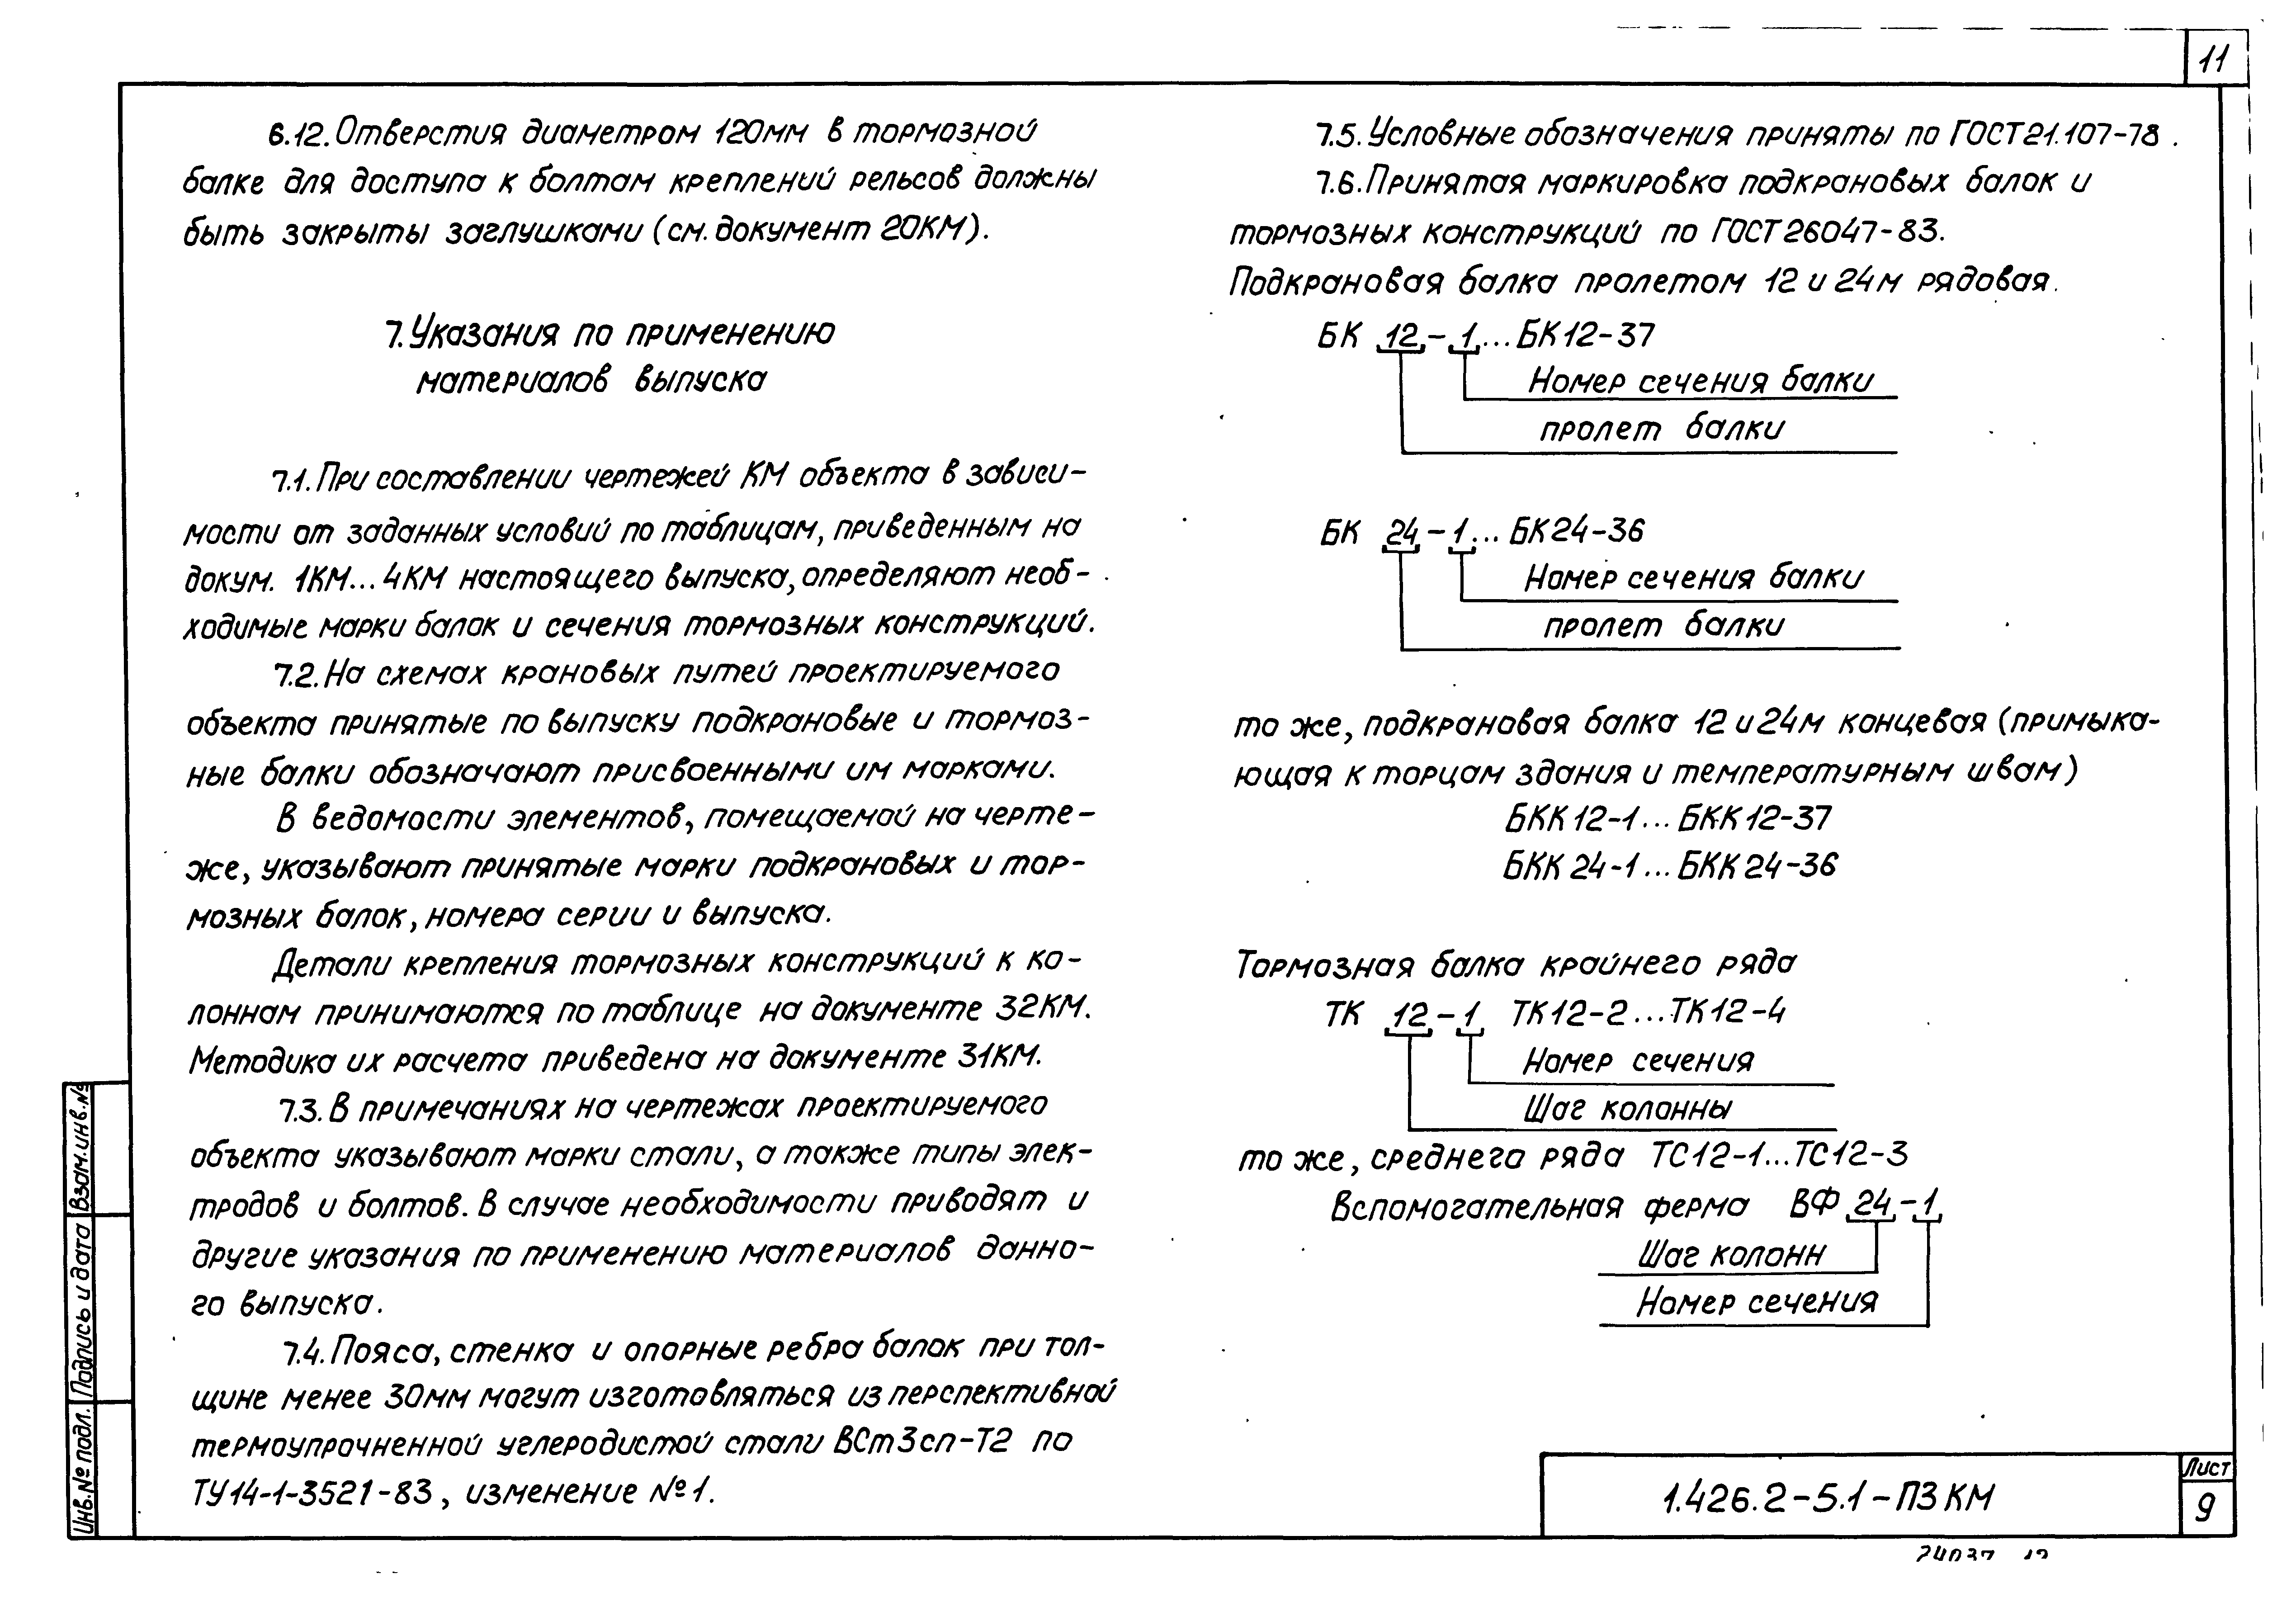 11
6.12. Отверстия диаметром 120мм в тормозной
балке для доступа к болтам креплений рельсов должны
быть закрыты заглушками (см. документ 20КМ).
7. Указания по применению
материалов выпуска
7.1. При составлении чертежей КМ объекта в зависи-
мости от заданных условий по таблицам, приведенным на
докум. 1КМ... 4КМ настоящего выпуска, определяют необ-
ходимые марки балок и сечения тормозных конструкций.
7.2. На схемах крановых путей проектируемого
объекта принятые по выпуску подкрановые и тормоз-
ные балки обозначают присвоенными им марками.
В ведомости элементов, помещаемой на черте-
же, указывают принятые марки подкрановых и тор-
мозных балок, номера серии и выпуска.
Детали крепления тормозных конструкций к ко-
лоннам принимаются по таблице на документе 32КМ.
Методика их расчета приведена на документе 31КМ.
7.3. В примечаниях на чертежах проектируемого
объекта указывают марки стали, а также типы элек-
тродов и болтов. В случае необходимости приводят и
другие указания по применению материалов данно-
го выпуска.
7.4. Пояса, стенка и опорные ребра балок при тол-
щине менее 30мм могут изготовляться из перспективной
термоупрочненной углеродистой стали ВСт3сп-Т2 по
ТУ14-1-3521-83, изменение №1.
7.5. Условные обозначения приняты по ГОСТ21.107-78.
7.6. Принятая маркировка подкрановых балок и
тормозных конструкций по ГОСТ26047-83.
Подкрановая балка пролетом 12 и 24м рядовая.
БК 12-1... БК12-37
Номер сечения балки
пролет балки
БК 24-1... БК24-36
Номер сечения балки
пролет балки
то же, подкрановая балка 12 и 24м концевая (примыка-
ющая к торцам здания и температурным швам)
БКК12-1... БКК12-37
БКК24-1... БКК24-36
Тормозная балка крайнего ряда
ТК 12-1 ТК12-2...ТК12-4
Номер сечения
Шаг колонны
то же, среднего ряда ТС12-1...ТС12-3
Вспомогательная ферма ВФ 24-1
Шаг колонн
Номер сечения
Взам.инв.№
Подпись и дата
Инв.№ подл.
1.426.2-5.1-ПЗ КМ
Лист
9